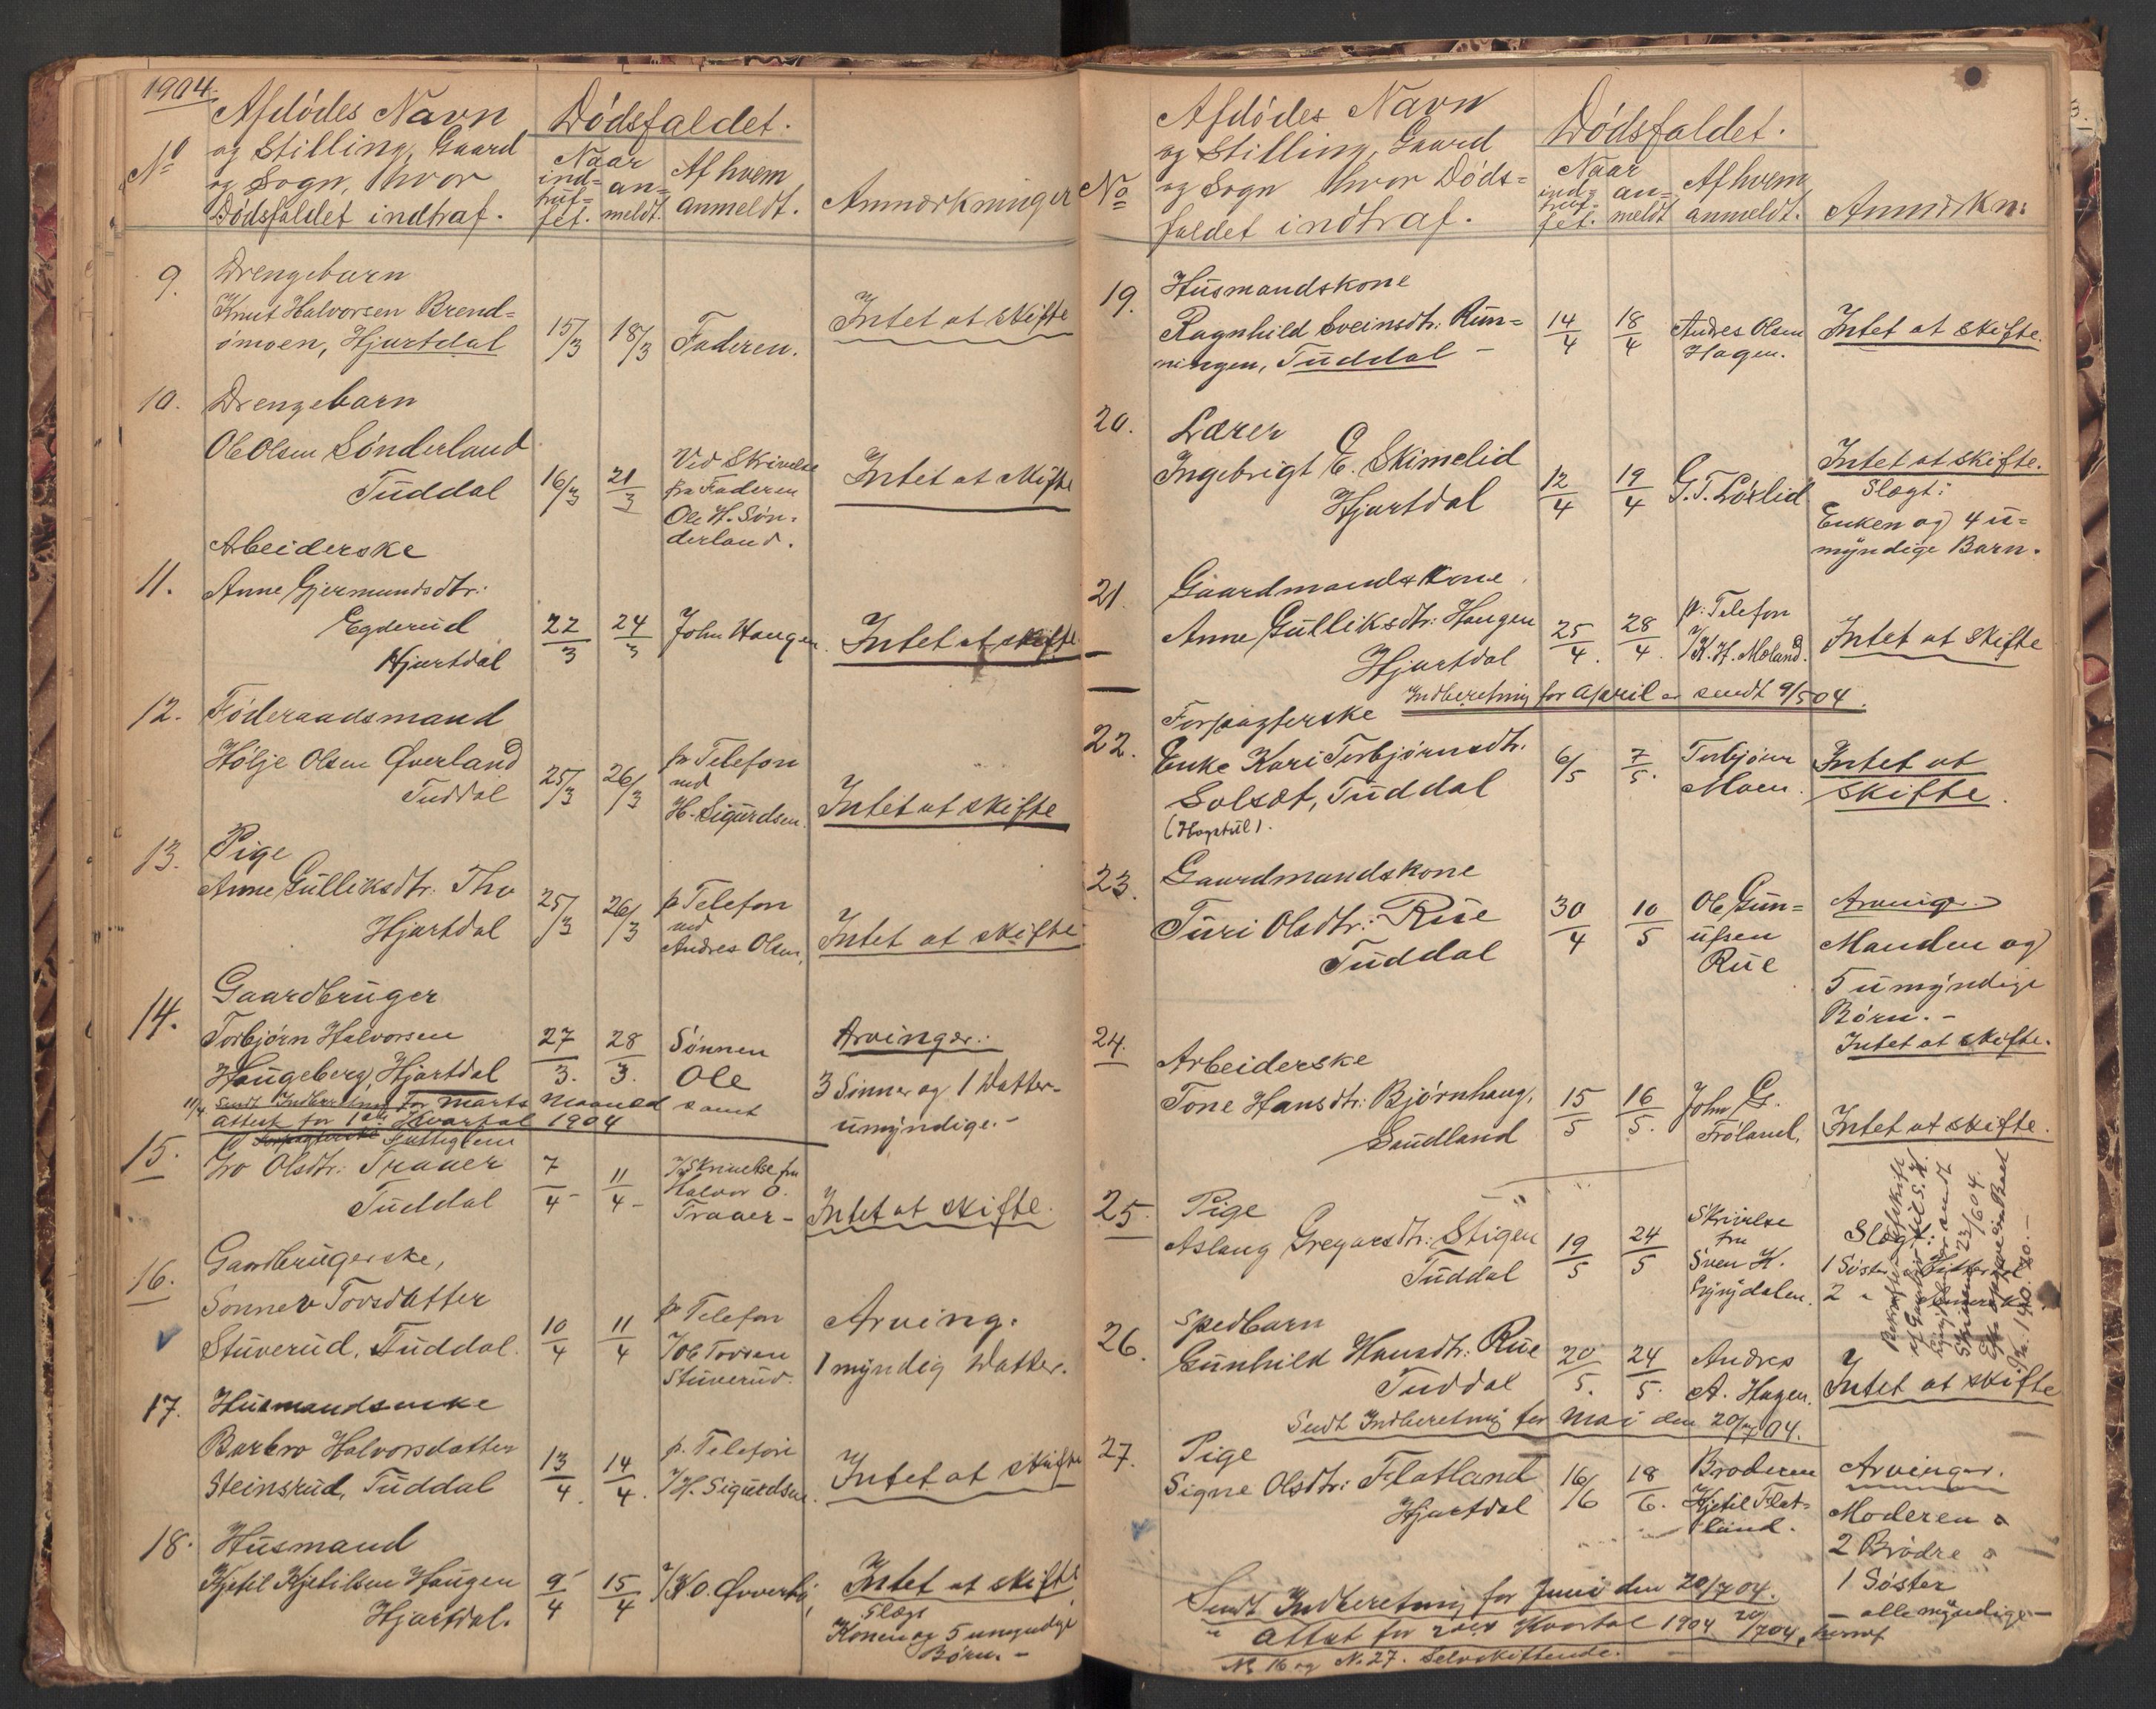 1904.
No
Afdödes Navn
og Stilling, Gaard
og Sogn, hvor
Dödsfaldet indtraf.
Dödsfaldet.
Naar
ind-
truf-
fet.
an-
meldt.
Af hvem
anmeldt.
Anmærkninger
9.
Drengebarn
Knut Halvorsen Brend-
ömoen, Hjartdal
15/3
18/3
Faderen.
Intet at skifte
10.
Drengebarn
Ole Olsen Sönderland
Tuddal
16/3
21/3
Ved Skrivelse
fra Faderen
Ole H. Sön-
derland.
Intet at skifte
11.
Arbeiderske
Anne Gjermundsdtr:
Egderud
Hjartdal
22/3
24/3
John Haugen.
Intet at skifte
12.
Föderaadsmand
Hölje Olsen Øverland
Tuddal
25/3
26/3
pr Telefon
ved
H. Sigurdsen.
Intet at skifte
13.
Pige
Anne Gulliksdtr. Tho
Hjartdal
25/3
26/3
p Telefon
ved
Andres Olsen.
Intet at skifte
14.
Gaardbruger
Torbjörn Halvorsen
Haugeberg, Hjartdal
27/3.
28/3.
Sönnen
Ole
Arvinger:
3 Sönner og 1 Datter-
umyndige.-
11/4. Sendt Indberetning for Marts Maaned samt
Attest for 1ste Kvartal 1904
15.
Fattiglem
Olsdtr: Traaer
Tuddal
7/4-
11/4-
Skrivelse fra
Halvor O.
Traaer-
Intet at skifte.
16.
Gardbrugerske,
Sonnev Tovsdatter
Stuverud, Tuddal.
10/4
11/4
pr Telefon
Tovsen
Stuverud.
Arving:
1 myndig Datter.
17.
Husmandsenke
Barbro Halvorsdatter
Steinsrud, Tuddal
13/4.
14/4.
p. Telefon
v/H. Sigurdsen.
Intet at skifte
18.
Husmand
Kjetil Kjetilsen Haugen
Hjartdal.
9/4
15/4
Intet at skifte
Slægt
Konen og 5 umyndige
Börn.-
No
Afdödes Navn
og Stilling, Gaard
og Sogn hvor Döds-
faldet indtraf.
Dödsfaldet.
Naar
ind-
truf-
fet.
an-
meldt
Af hvem
anmeldt.
Anmærkn:
19.
Husmandskone
Ragnhild Sveinsdtr: Run-
ningen, Tuddal -
14/4
18/4
Andres Olsen
Hagen.
Intet at skifte.
20.
Lærer
Ingebrigt E. Skimelid
Hjartdal
12/4
19/4
G. T. Löxlid
Intet at skifte.
Slægt:
Enken og 4 u-
myndige Barn.
21.
Gaardmandskone
Anne Gulliksdtr: Haugen
Hjartdal
25/4.
28/4.
p: Telefon
v/K. H. Moland.
Intet at skifte
Indberetning for April er sendt 9/5 04.
22.
Forpagterske
Enke Kari Torbjörnsdtr.
Solset, Tuddal
6/5
7/5.
Torbjörn
Moen.
Intet at
skifte.
23.
Gaardmandskone
Turi Olsdtr: Rue
Tuddal
30/4
10/5
Ole Gun-
ufsen
Rue
Arvinger
Manden og
5 umyndige
Börn.-
Intet at skifte.
24.
Arbeiderske
Tone Hansdtr: Björnhaug,
Sauland
15/5
16/5.
John G.
Fröland.
Intet at skifte.
25.
Pige
Aslaug Gregarsdtr: Stigen
Tuddal
19/5
24/5
Skrivelse
fra
Sven H.
Lyngdalen.
Slægt:
1 Söster
2 " Amerika.
26.
Spedbarn
Gunhild Hansdtr: Rue
Tuddal
20/5.
24/5.
Andres
A. Hagen.
Intet at skifte
Sendt Indberetning for Mai den 20/7 04.
27.
Pige
Signe Olsdtr: Flatland
Hjartdal
16/6
18/6.
Broderen
Kjetil Flat-
land.
Arvinger.
Moderen
2 Brödre
1 Söster
- alle myndige -
Sendt Indberetning for Juni den 20/7 04.
" Attest for 2det Kvartal 1904 20/7 04,
No 16 og No 27. Selvskiftende.